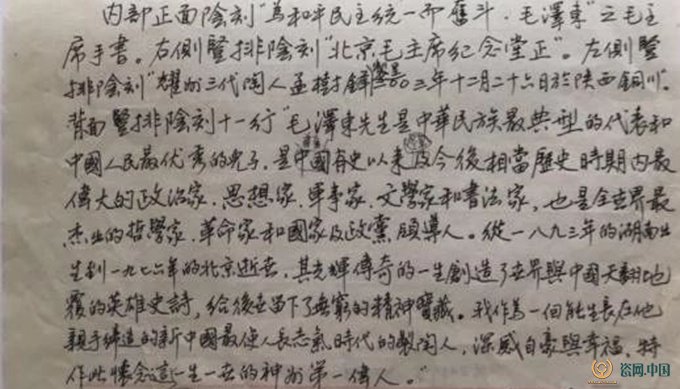 内部正面陰刻“為和平民主統一而奮斗．毛澤東”之毛主
席手書。右側豎排陰刻“北京毛主席紀念堂正”。左側豎
排陰刻“耀州三代陶人孟樹鋒 二00三年十二月二十六日於陝西銅川”。
背面豎排陰刻十一行“毛澤東先生是中華民族最典型的代表和
中國人民最优秀的兒子，是中國有史以来及今後相當歷史時期内最
偉大的政治家、思想家、軍事家、文學家和書法家，也是全世界最
杰出的哲學家、革命家和國家及政黨領導人。從一八九三年的湖南出
生到一九七六年的北京逝去，其光輝傳奇的一生創造了世界與中國天翻地
覆的英雄史詩，給後世留下了無窮的精神寶藏。我作為一個能生長在他
親手締造的新中國最使人長志氣時代的製陶人，深感自豪與幸福，特
作此懷念這一生一世的神州第一偉人。”
瓷网.中国